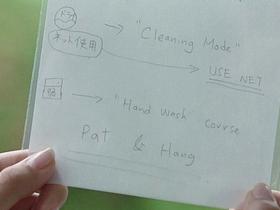 ドライ → "Cleaning Mode"
ネット使用 → USE NET
→ "Hand Wash" course
Pat & Hang